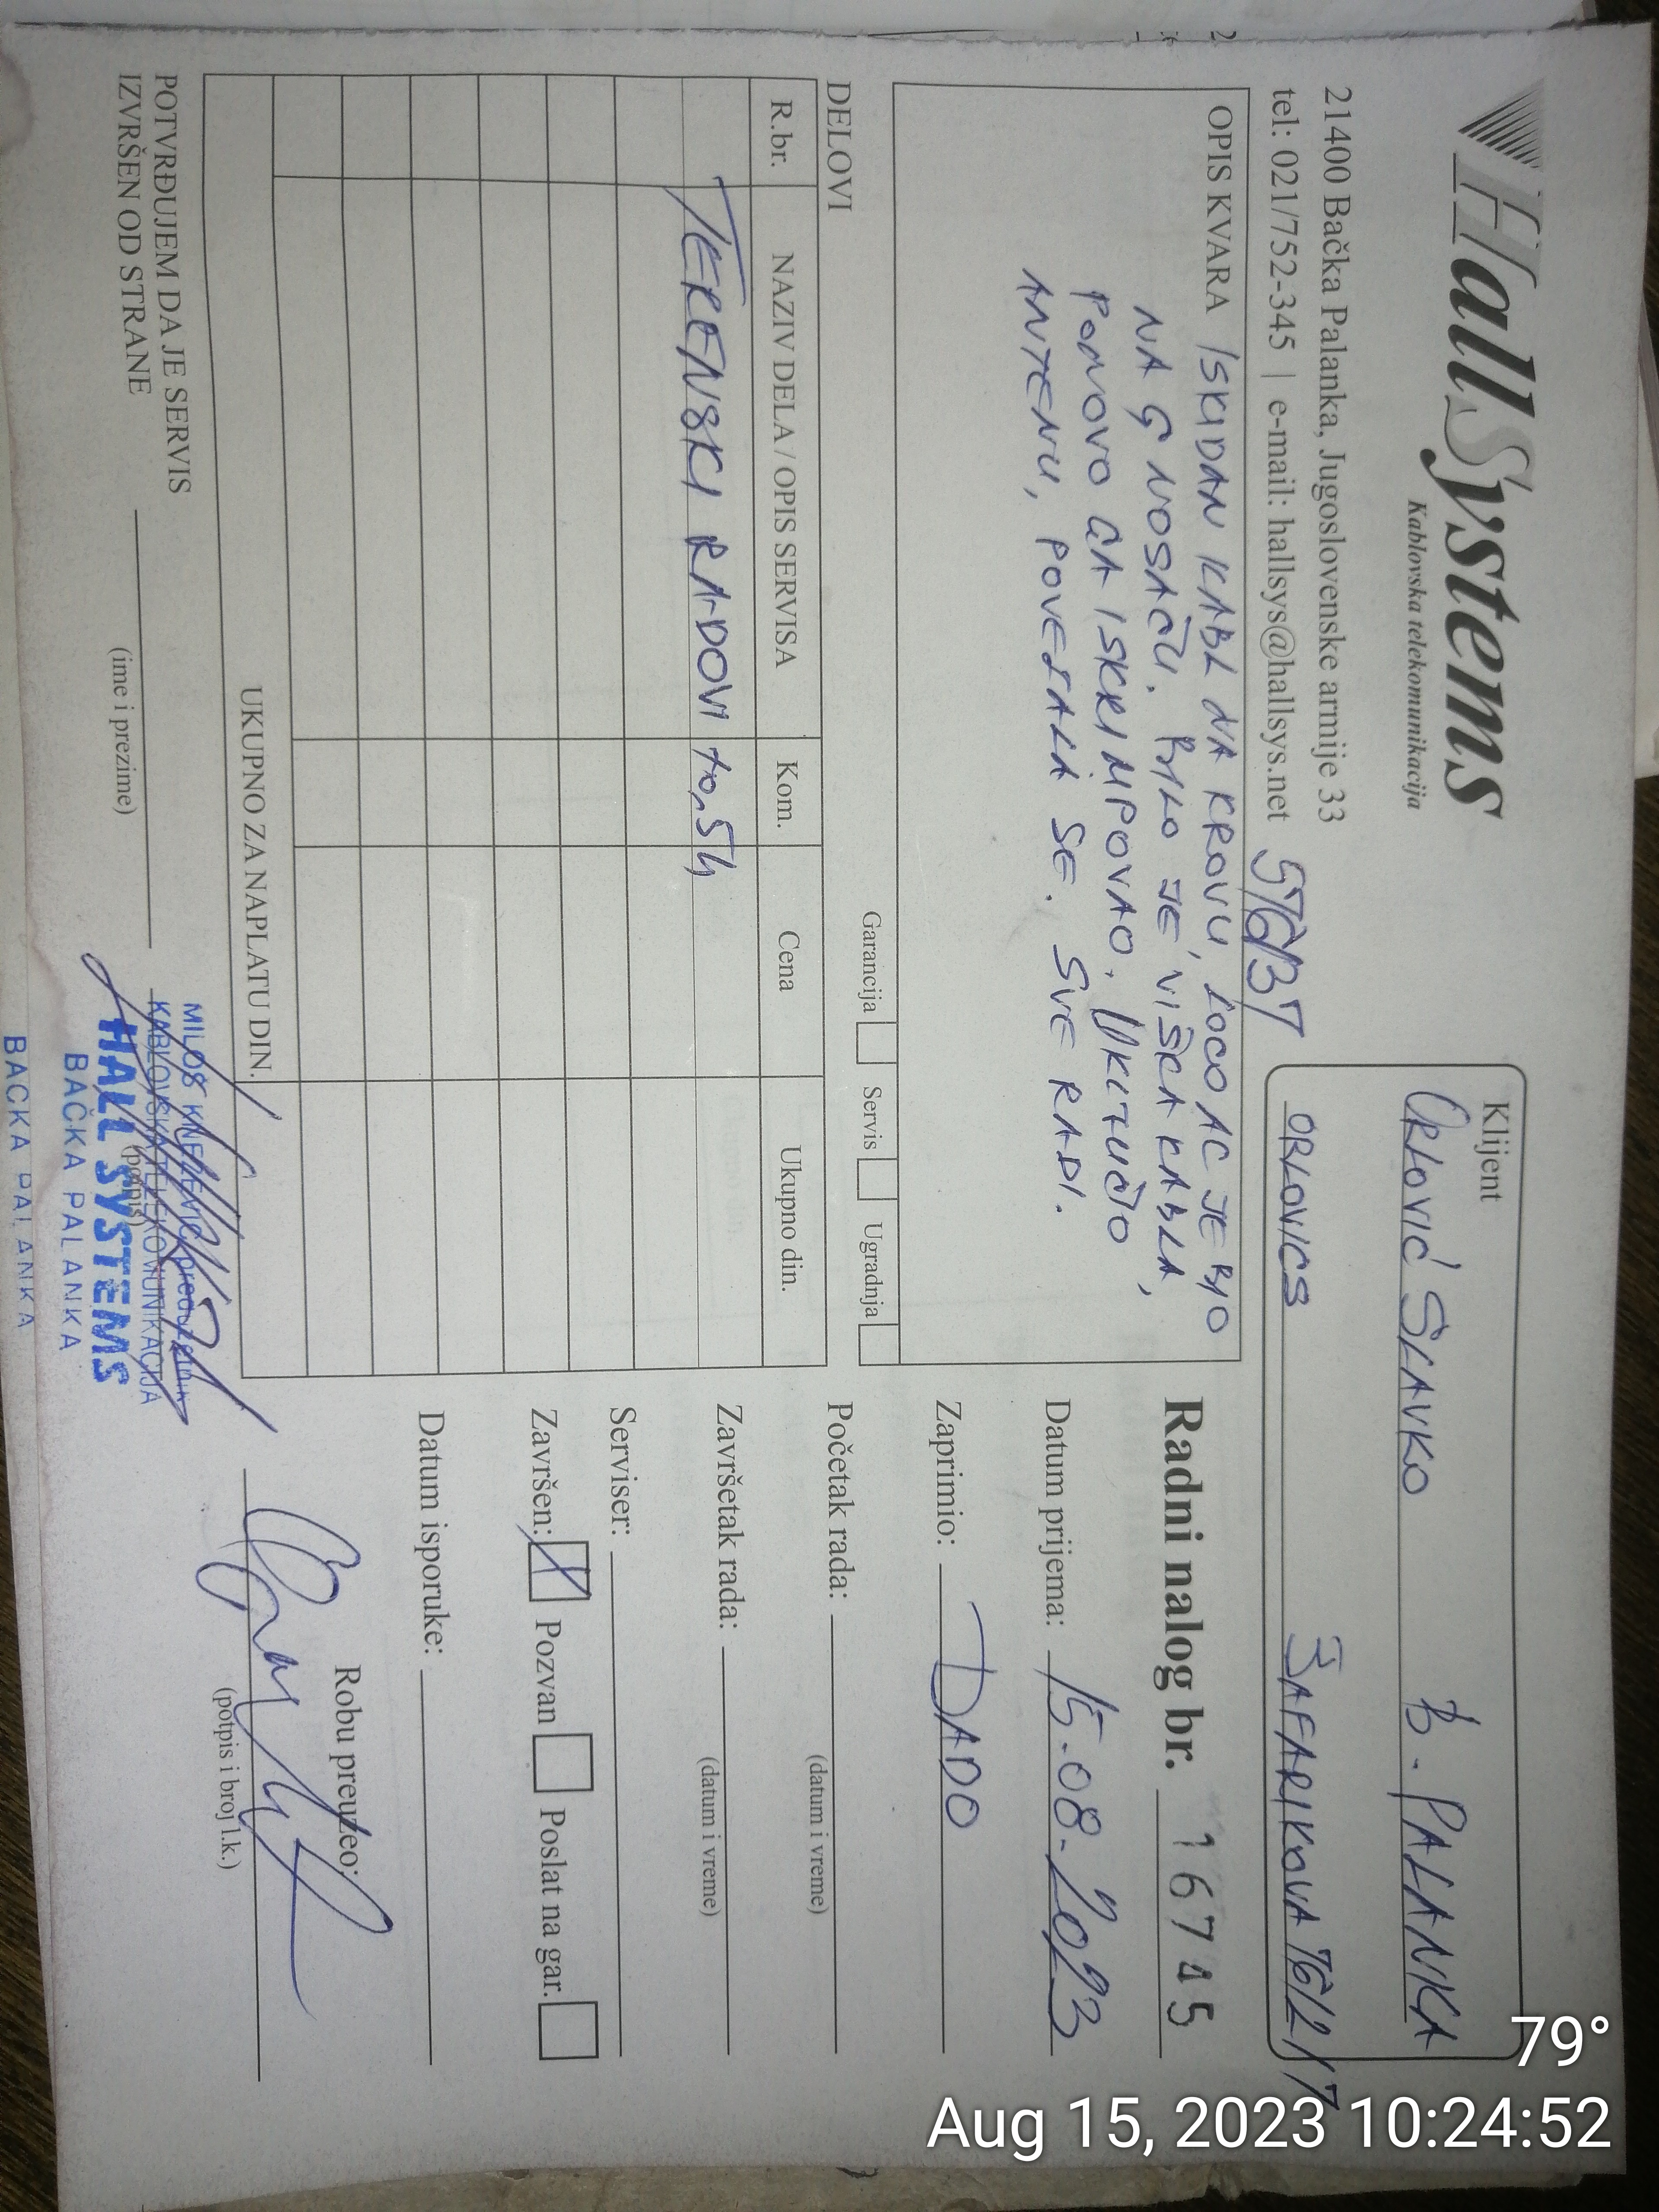 HallSystems
Kablovska telekomunikacija
21400 Bačka Palanka, Jugoslovenske armije 33
tel: 021/752-345 | e-mail: hallsys@hallsys.net
Klijent
ORLOVIĆ SLAVKO B. PALANKA
ORLOVICS ŠAFARIKOVA
OPIS KVARA ISKIDAN KABL NA KROVU, LOCO AC JE BIO
NA G NOSAČU. BILO JE VIŠKA KABLA,
PONOVO GA ISKRIMPOVAO. UKLJUČIO
ANTENU, POVEZALA SE. SVE RADI.
Garancija Servis Ugradnja
DELOVI
R.br. NAZIV DELA / OPIS SERVISA Kom. Cena Ukupno din.
TERENSKI RADOVI
UKUPNO ZA NAPLATU DIN.
POTVRĐUJEM DA JE SERVIS
IZVRŠEN OD STRANE
(ime i prezime)
(potpis)
KABLOVSKA TELEKOMUNIKACIJA
HALL SYSTEMS
BAČKA PALANKA
BACKA PALANKA
Radni nalog br. 16745
Datum prijema: 15.08.2023
Zaprimio: DADO
Početak rada:
(datum i vreme)
Završetak rada:
(datum i vreme)
Serviser:
Završen: Pozvan Poslat na gar.
Datum isporuke:
Robu preuzeo:
(potpis i broj l.k.)
79°
Aug 15, 2023 10:24:52